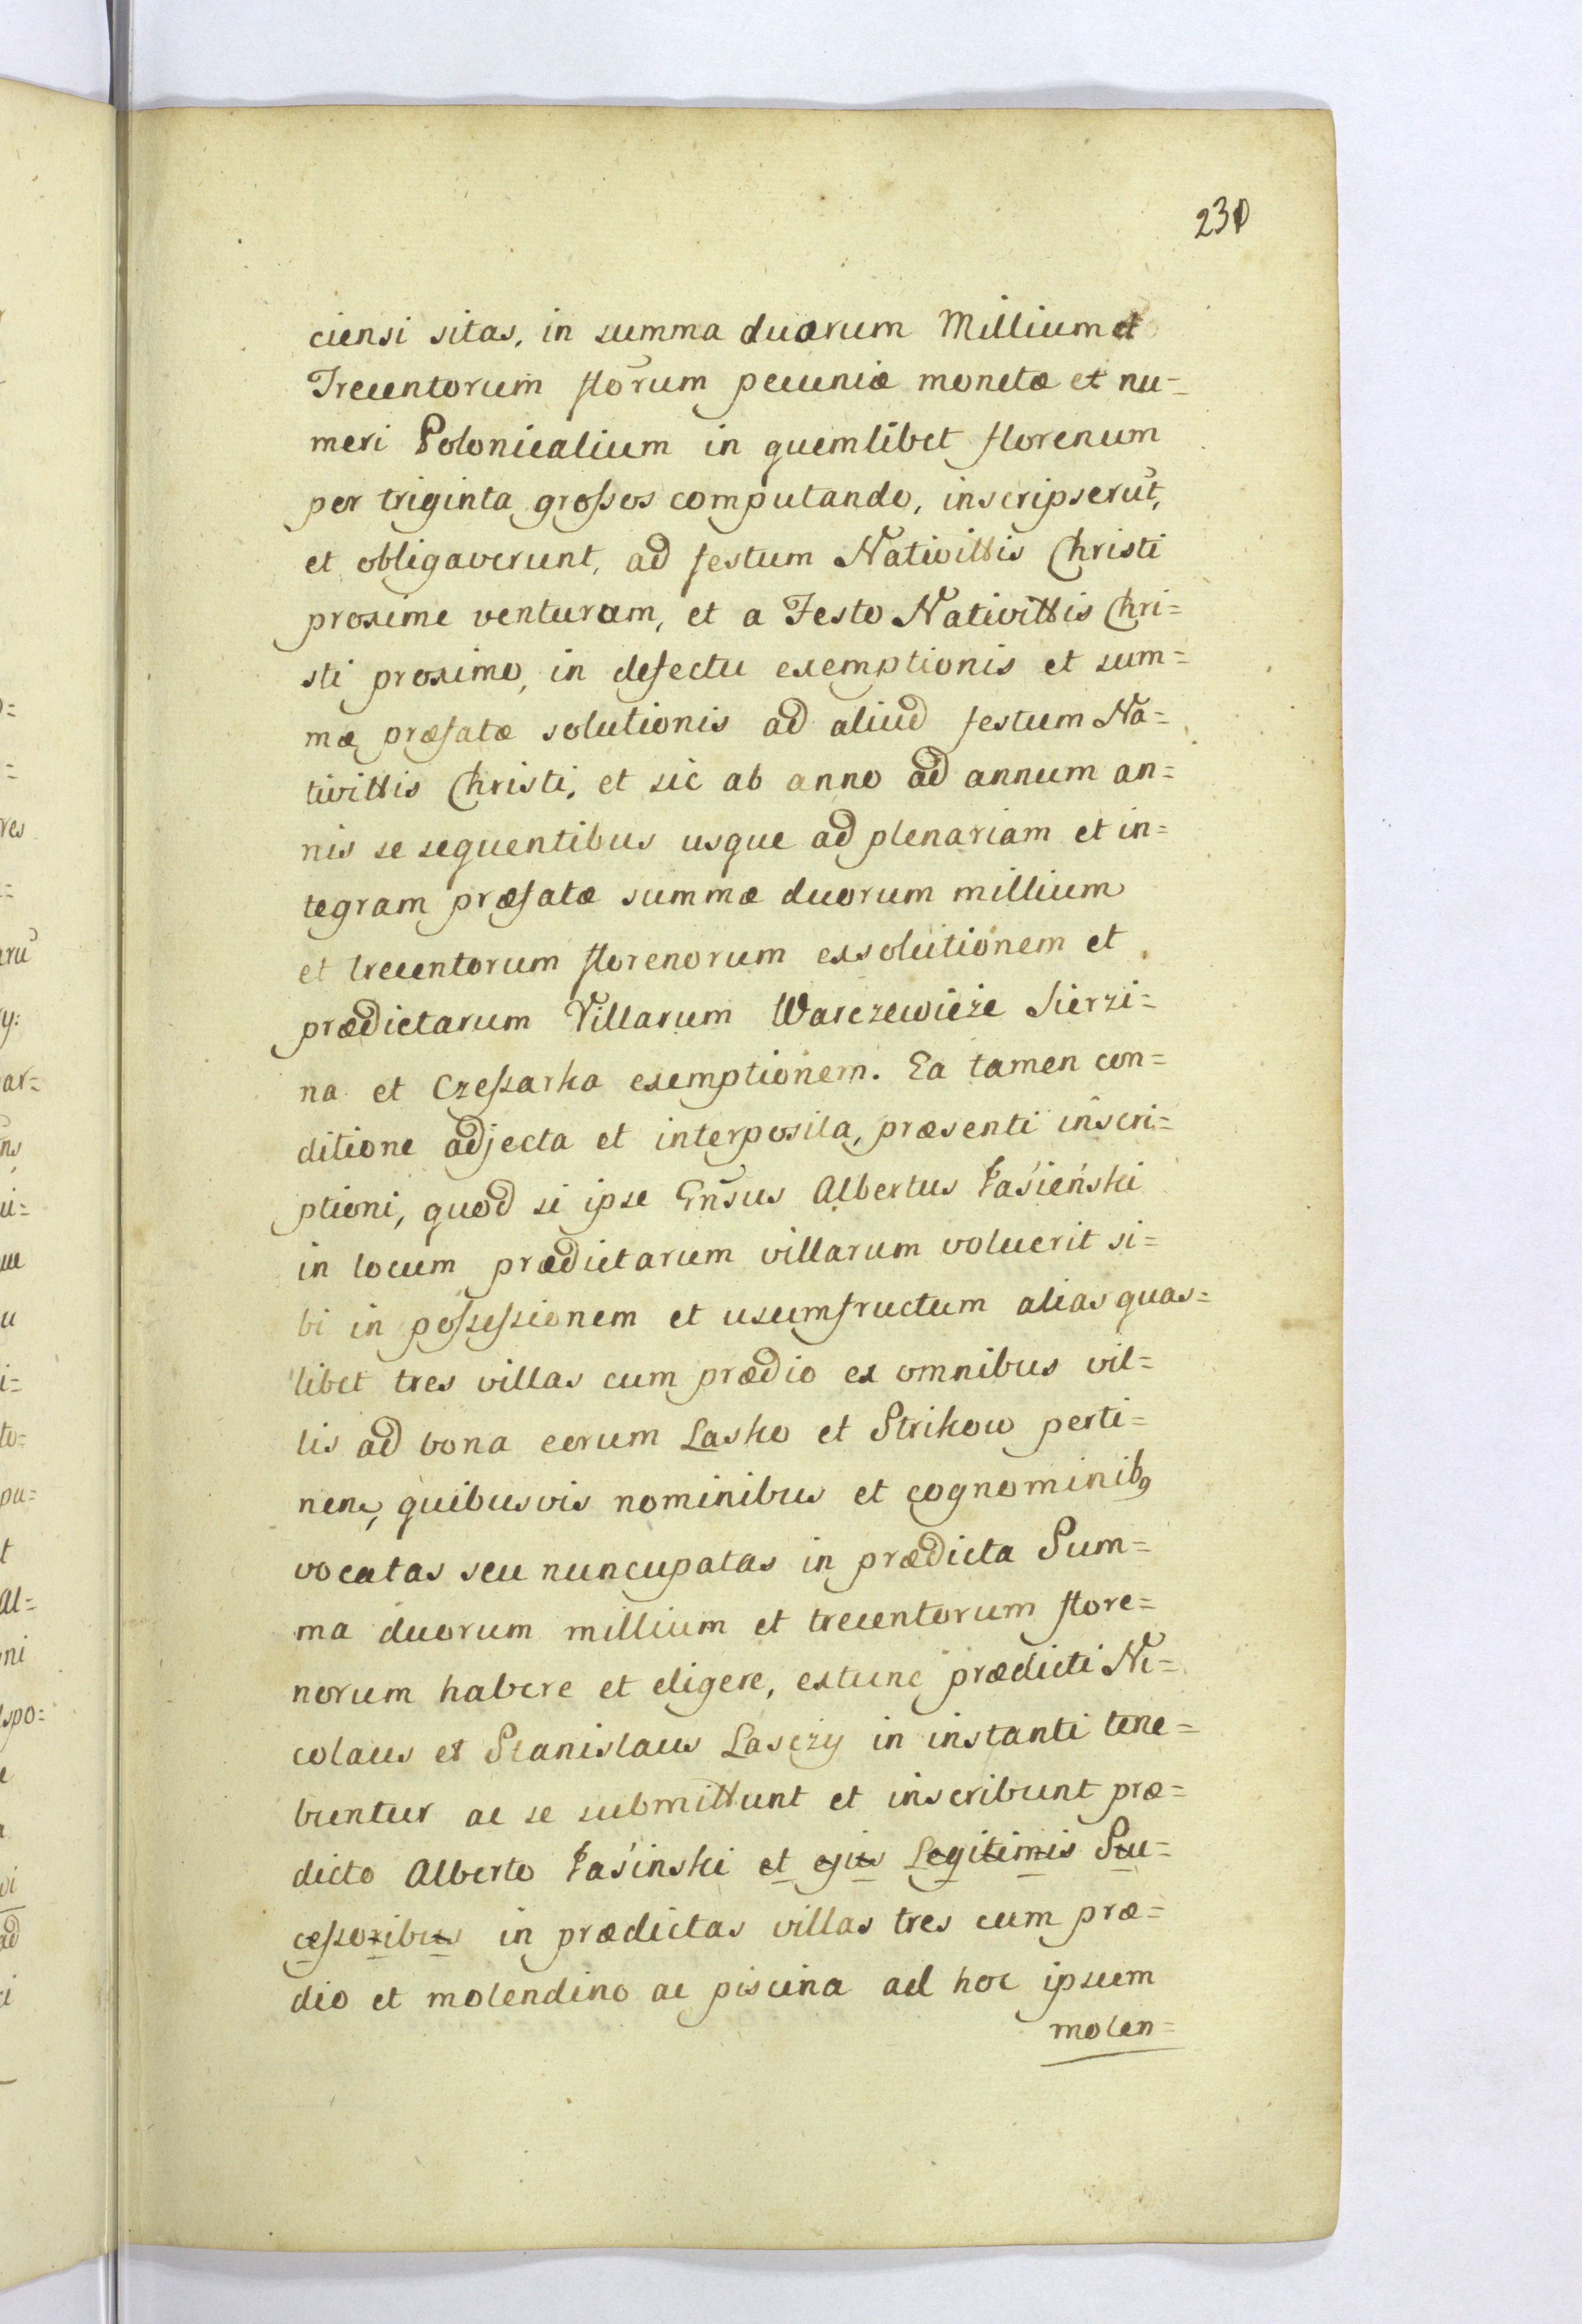 231
ciensi sitas, in summa duorum Millium et
Trecentorum flōrum pecuniæ monetæ et nu=
meri Polonicalium in quemlibet florenum
per triginta grossos computando, inscripserūt,
et obligaverunt, ad festum Nativittis Christi
proxime venturam, et a Festo Nativittis Chri=
sti proximo, in defectu exemptionis et sum=
mæ præfatæ solutionis ad aliud festum Na=
tivittis Christi, et sic ab anno ad annum an=
nis se sequentibus usque ad plenariam et in=
tegram præfatæ summæ duorum millium
et trecentorum florenorum exsolutionem et
prædictarum Villarum Warczewieże Sierzi=
na et Czessarka exemptionem. Ea tamen con=
ditione adjecta et interposita, præsenti inscri=
ptioni, quod si ipse Gn̄sus Albertus Jasieński
in locum prædictarum villarum voluerit si=
bi in possessionem et usumfructum alias quas=
libet tres villas cum prædio ex omnibus vil=
lis ad bona eorum Lasko et Strikow perti=
nen, quibusvis nominibus et cognominib9
vocatas seu nuncupatas in prædicta Sum=
ma duorum millium et trecentorum flore=
norum habere et eligere, extunc prædicti Ni=
colaus et Stanislaus Lasczy in instanti tene=
buntur ac se submittunt et inscribunt præ=
dicto Alberto Jasinski et ejus Legitimis Su=
cessoribus in prædictas villas tres cum præ=
dio et molendino ac piscina ad hoc ipsum
molen=